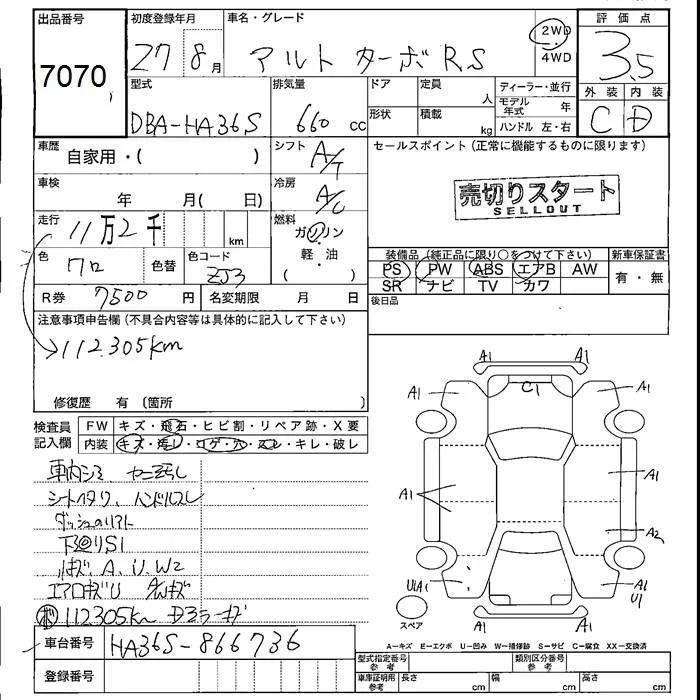 出品番号
7070
初度登録年月
27 8月
車名・グレード
アルト ターボRS
2WD
4WD
評価点
3.5
型式
DBA-HA36S
排気量
660 cc
ドア
定員
人
形状
積載
kg
ディーラー・並行
モデル年式 年
ハンドル 左・右
外装 内装
C D
車歴
自家用・( )
シフト
A/T
車検
年 月( 日)
冷房
A/C
走行
11万2千 km
燃料
ガソリン
軽・油
( )
色
クロ
色替
色コード
ZJ3
R券 7500 円
名変期限 月 日
セールスポイント (正常に機能するものに限ります)
売切りスタート
SELLOUT
装備品 (純正品に限り○をつけて下さい)
新車保証書
PS PW ABS エアB AW
SR ナビ TV カワ
有・無
後日品
注意事項申告欄 (不具合内容等は具体的に記入して下さい)
112.305km
修復歴 有 (箇所 )
検査員
記入欄
FW キズ・飛石・ヒビ割・リペア跡・X要
内装 キズ・汚レ・コゲ・穴・スレ・キレ・破レ
シートヘタリ、ハンドルスレ
下回りS1
A、U、W2
112305km
車台番号 HA36S-866736
登録番号
A1 A1
A1 C1 A1
A1 A1
A2
U1A1 A1
U1
スペア
A-キズ E-エクボ U-凹み W-補修跡 S-サビ C-腐食 XX-交換済
型式指定番号 参考
類別区分番号 参考
車庫証明用 参考
長さ cm 幅 cm 高さ cm